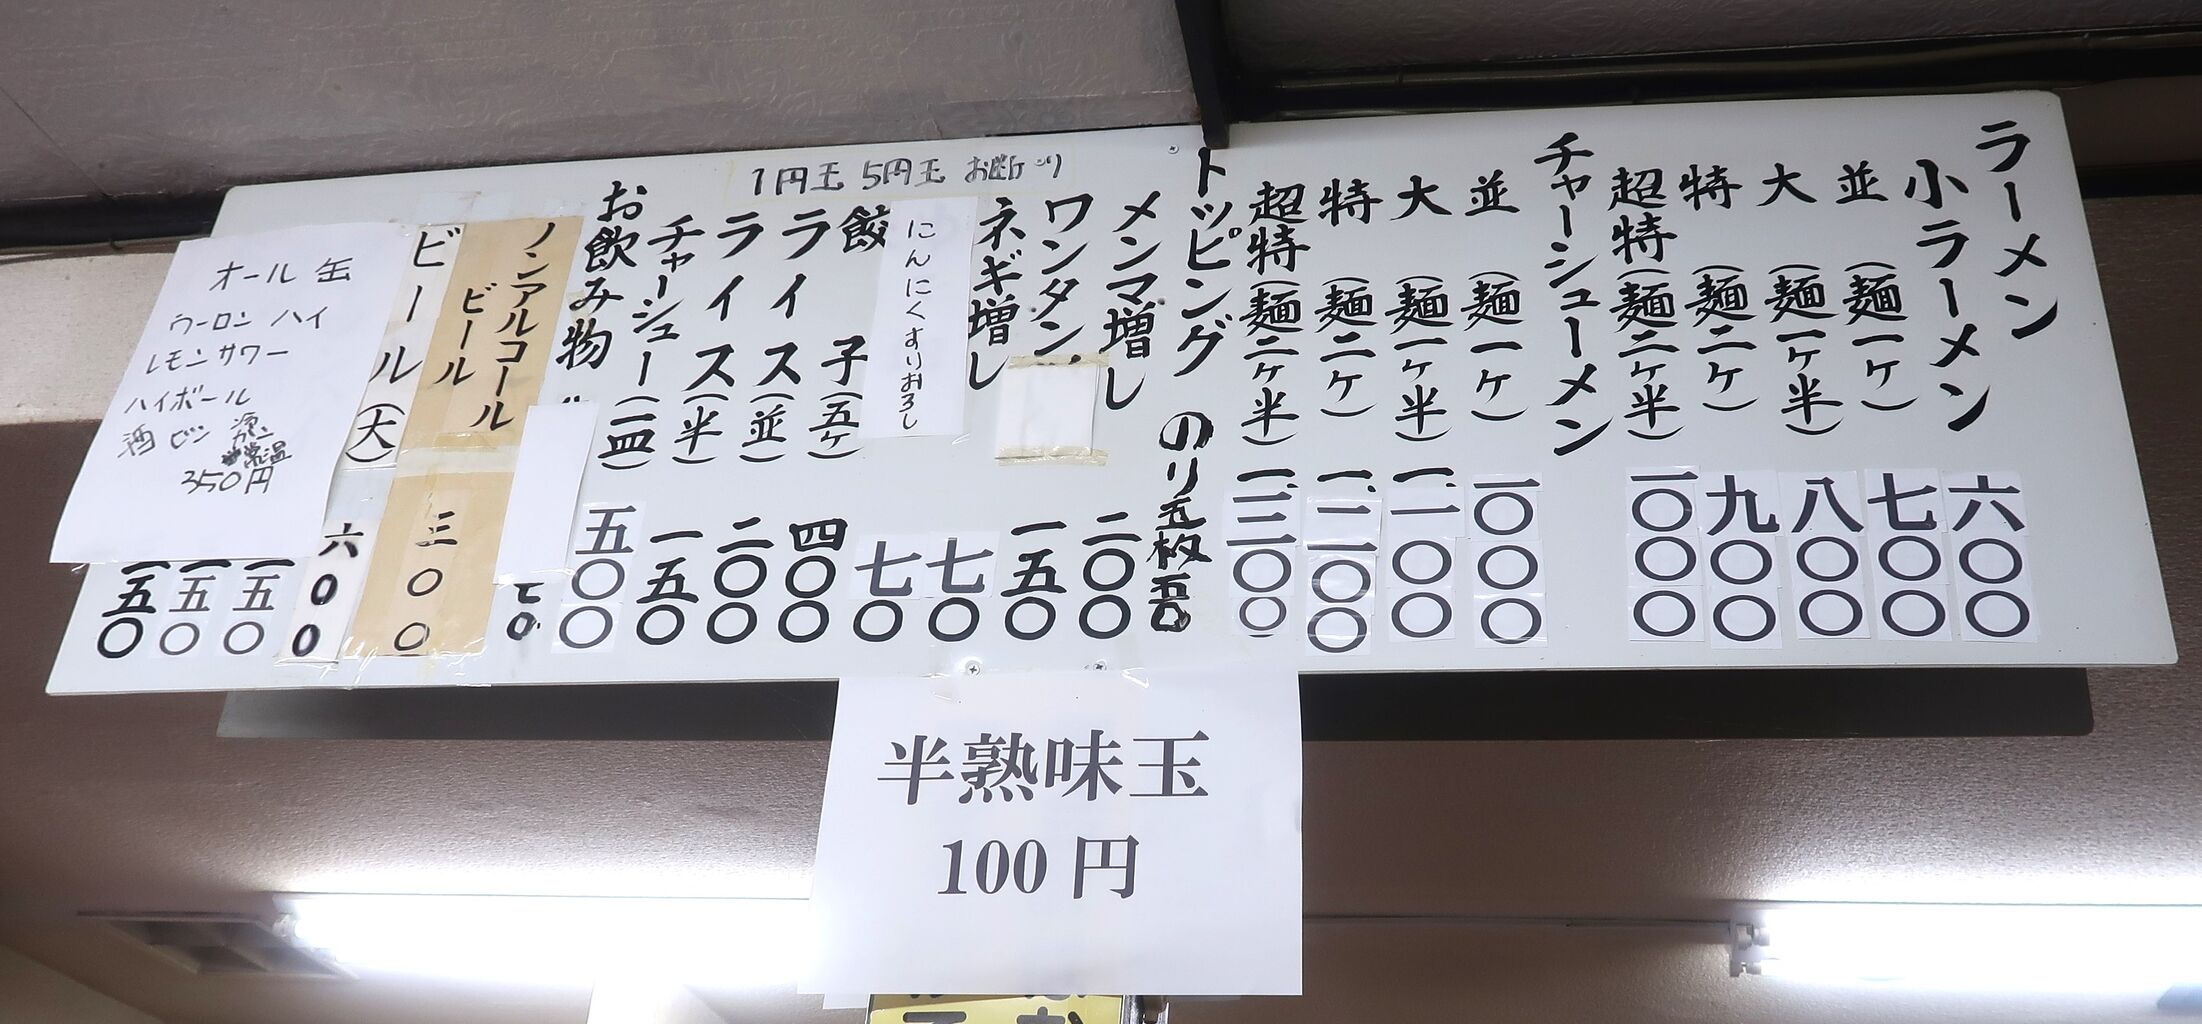 ラーメン
小ラーメン 六〇〇
並(麺一ケ) 七〇〇
大(麺一ケ半) 八〇〇
特(麺二ケ) 九〇〇
超特(麺二ケ半) 一〇〇〇
チャーシューメン
並(麺一ケ) 一〇〇〇
大(麺一ケ半) 一、一〇〇
特(麺二ケ) 一、二〇〇
超特(麺二ケ半) 一、三〇〇
トッピング のり五枚五〇
メンマ増し 二〇〇
ワンタン 一五〇
ネギ増し 七〇
にんにくすりおろし 七〇
餃子(五ケ) 四〇〇
ライス(並) 二〇〇
ライス(半) 一五〇
チャーシュー(一皿) 五〇〇
お飲み物
ノンアルコール
ビール 三〇〇
ビール(大) 六〇〇
一五〇
一五〇
一五〇
1円玉 5円玉 お断り
オール缶
ウーロンハイ
レモンサワー
ハイボール
酒ビン 冷
カン
常温
350円
半熟味玉
100円